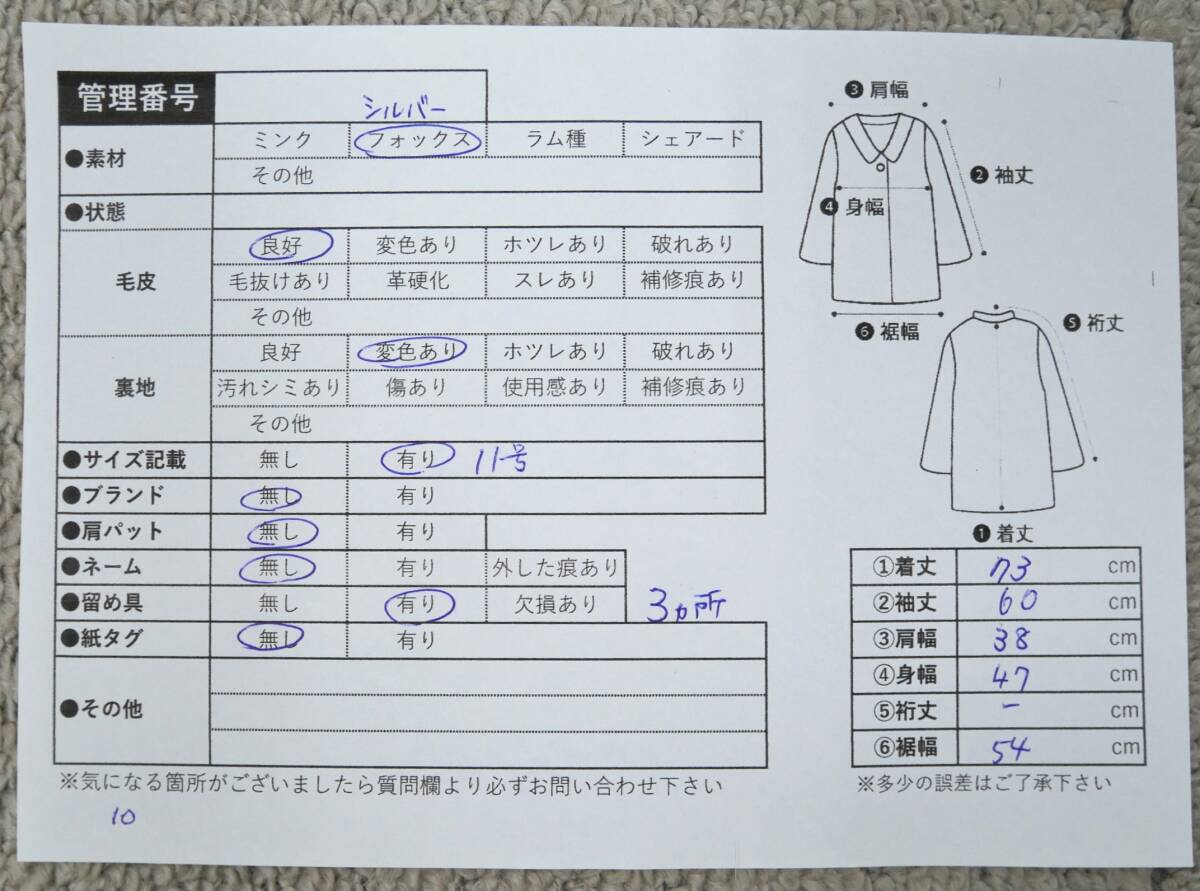 管理番号
シルバー
●素材 ミンク フォックス ラム種 シェアード
その他
●状態
毛皮 良好 変色あり ホツレあり 破れあり
毛抜けあり 革硬化 スレあり 補修痕あり
その他
裏地 良好 変色あり ホツレあり 破れあり
汚れシミあり 傷あり 使用感あり 補修痕あり
その他
●サイズ記載 無し 有り 11号
●ブランド 無し 有り
●肩パット 無し 有り
●ネーム 無し 有り 外した痕あり
●留め具 無し 有り 欠損あり 3ヵ所
●紙タグ 無し 有り
●その他
※気になる箇所がございましたら質問欄より必ずお問い合わせ下さい
10
❸肩幅
❷袖丈
❹身幅
❻裄幅
❺裄丈
❶着丈
①着丈 73 cm
②袖丈 60 cm
③肩幅 38 cm
④身幅 47 cm
⑤裄丈 ー cm
⑥裾幅 54 cm
※多少の誤差はご了承下さい